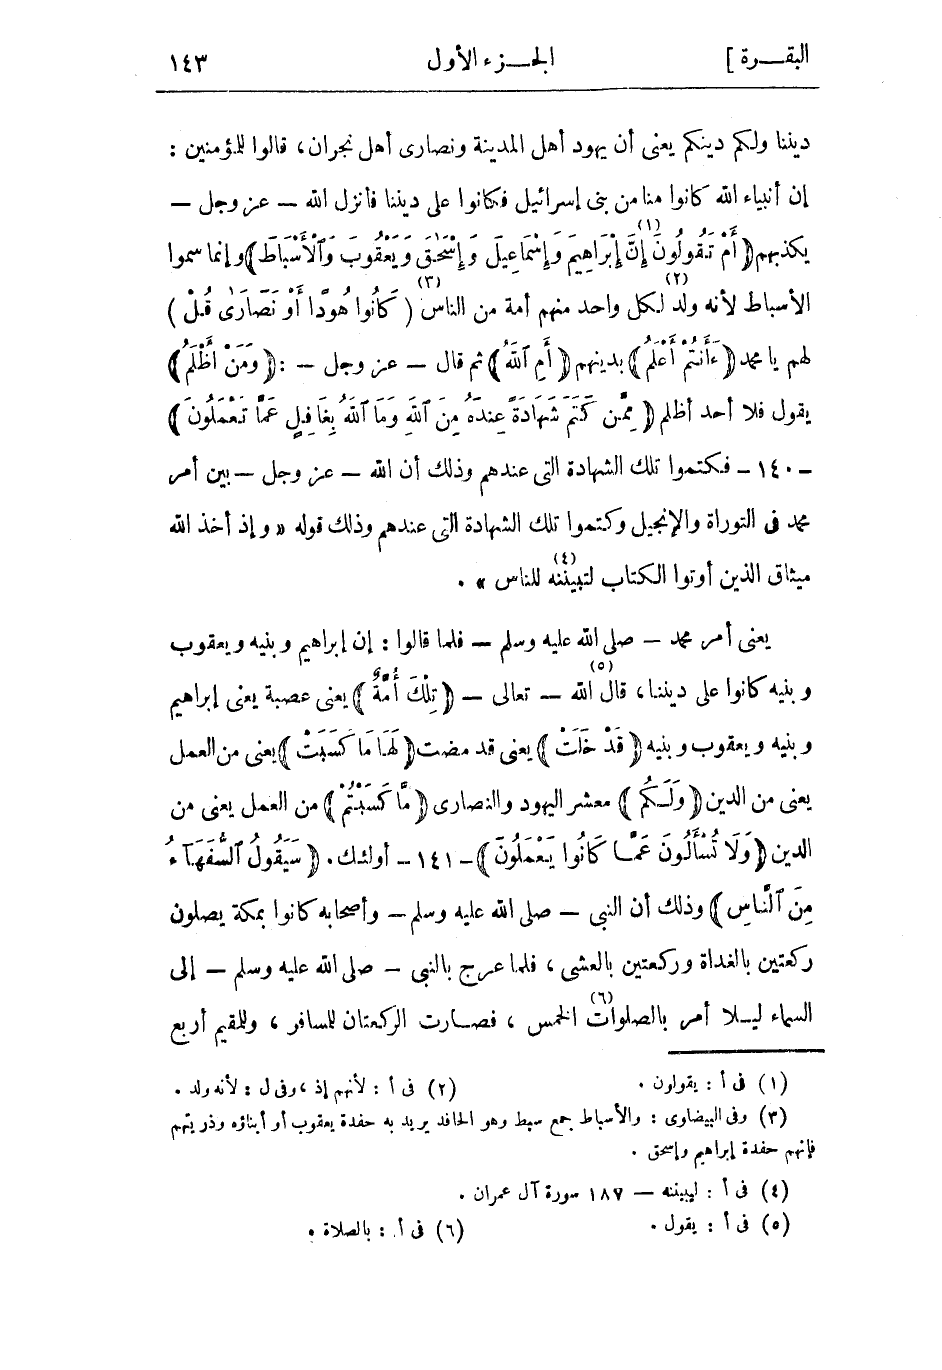 البقـــرة ]
الجـــزء الأول
١٤٣
ديننا ولكم دينكم يعنى أن يهود أهل المدينة ونصارى أهل نجران، قالوا للمؤمنين :
إن أنبياء الله كانوا منا من بنى إسرائيل فكانوا على ديننا فأنزل الله — عز وجل —
يكذبهم ﴿ أَمْ تَقُولُونَ (١) إِنَّ إِبْرَاهِيمَ وَإِسْمَاعِيلَ وَإِسْحَٰقَ وَيَعْقُوبَ وَٱلْأَسْبَاطَ ﴾ وإنما سموا
الأسباط لأنه ولد (٢) لكل واحد منهم أمة من الناس (٣) ﴿ كَانُوا هُودًا أَوْ نَصَٰرَىٰ قُلْ ﴾
لهم يا محمد ﴿ ءَأَنتُمْ أَعْلَمُ ﴾ بدينهم ﴿ أَمِ ٱللَّهُ ﴾ ثم قال — عز وجل — : ﴿ وَمَنْ أَظْلَمُ ﴾
يقول فلا أحد أظلم ﴿ مِمَّن كَتَمَ شَهَادَةً عِندَهُ مِنَ ٱللَّهِ وَمَا ٱللَّهُ بِغَافِلٍ عَمَّا تَعْمَلُونَ ﴾
– ١٤٠ – فكتموا تلك الشهادة التى عندهم وذلك أن الله — عز وجل — بين أمر
محمد فى التوراة والإنجيل وكتموا تلك الشهادة التى عندهم وذلك قوله « وإذ أخذ الله
ميثاق الذين أوتوا الكتاب لتبيننه (٤) للناس » .
يعنى أمر محمد — صلى الله عليه وسلم — فلما قالوا : إن إبراهيم وبنيه ويعقوب
وبنيه كانوا على ديننا، قال الله (٥) — تعالى — ﴿ تِلْكَ أُمَّةٌ ﴾ يعنى عصبة يعنى إبراهيم
وبنيه ويعقوب وبنيه ﴿ قَدْ خَلَتْ ﴾ يعنى قد مضت ﴿ لَهَا مَا كَسَبَتْ ﴾ يعنى من العمل
يعنى من الدين ﴿ وَلَكُم ﴾ معشر اليهود والنصارى ﴿ مَّا كَسَبْتُمْ ﴾ من العمل يعنى من
الدين ﴿ وَلَا تُسْأَلُونَ عَمَّا كَانُوا يَعْمَلُونَ ﴾ – ١٤١ – أولئك . ﴿ سَيَقُولُ ٱلسُّفَهَآءُ
مِنَ ٱلنَّاسِ ﴾ وذلك أن النبى — صلى الله عليه وسلم — وأصحابه كانوا بمكة يصلون
ركعتين بالغداة وركعتين بالعشى ، فلما عرج بالنبى — صلى الله عليه وسلم — إلى
السماء ليـلا أمر بالصلوات (٦) الخمس ، فصـارت الركعتان للسافر ، وللمقيم أربع
(١) فى أ : يقولون .
(٢) فى أ : لأنهم إذ ، وفى ل : لأنه ولد .
(٣) وفى البيضاوى : والأسباط جمع سبط وهو الحافد يريد به حفدة يعقوب أو أبناؤه وذريتهم
فإنهم حفدة إبراهيم وإسحق .
(٤) فى أ : ليبيننه — ١٨٧ سورة آل عمران .
(٥) فى أ : يقول .
(٦) فى أ : بالصلاة .